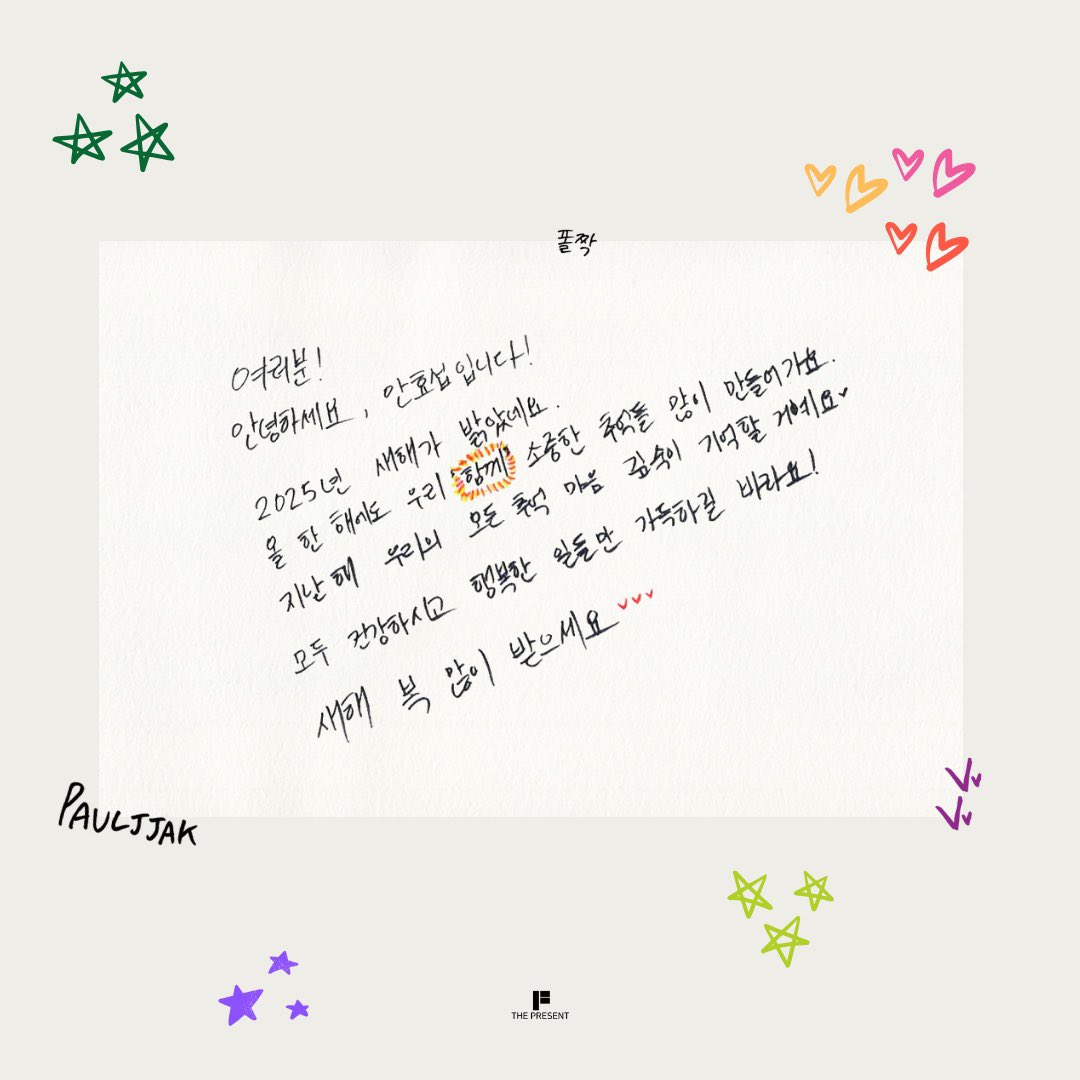 폴짝
여러분!
안녕하세요, 안효섭입니다!
2025년 새해가 밝았네요.
올 한 해에도 우리 '함께' 소중한 추억들 많이 만들어가요.
지난해 우리의 모든 추억 마음 깊숙이 기억할 거예요♥
모두 건강하시고 행복한 일들만 가득하길 바라요!
새해 복 많이 받으세요♥♥♥
PAULJJAK
THE PRESENT